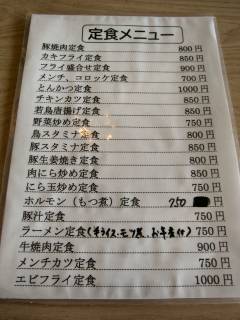 定食メニュー
豚焼肉定食 800円
カキフライ定食 850円
フライ盛合せ定食 900円
メンチ、コロッケ定食 700円
とんかつ定食 1000円
チキンカツ定食 850円
若鳥唐揚げ定食 850円
野菜炒め定食 750円
鳥スタミナ定食 850円
豚スタミナ定食 850円
豚生姜焼き定食 800円
肉にら炒め定食 850円
にら玉炒め定食 750円
ホルモン（もつ煮）定食 750 円
豚汁定食 750円
ラーメン定食(半ライス、モツ煮、お新香付) 750円
牛焼肉定食 900円
メンチカツ定食 750円
エビフライ定食 1000円